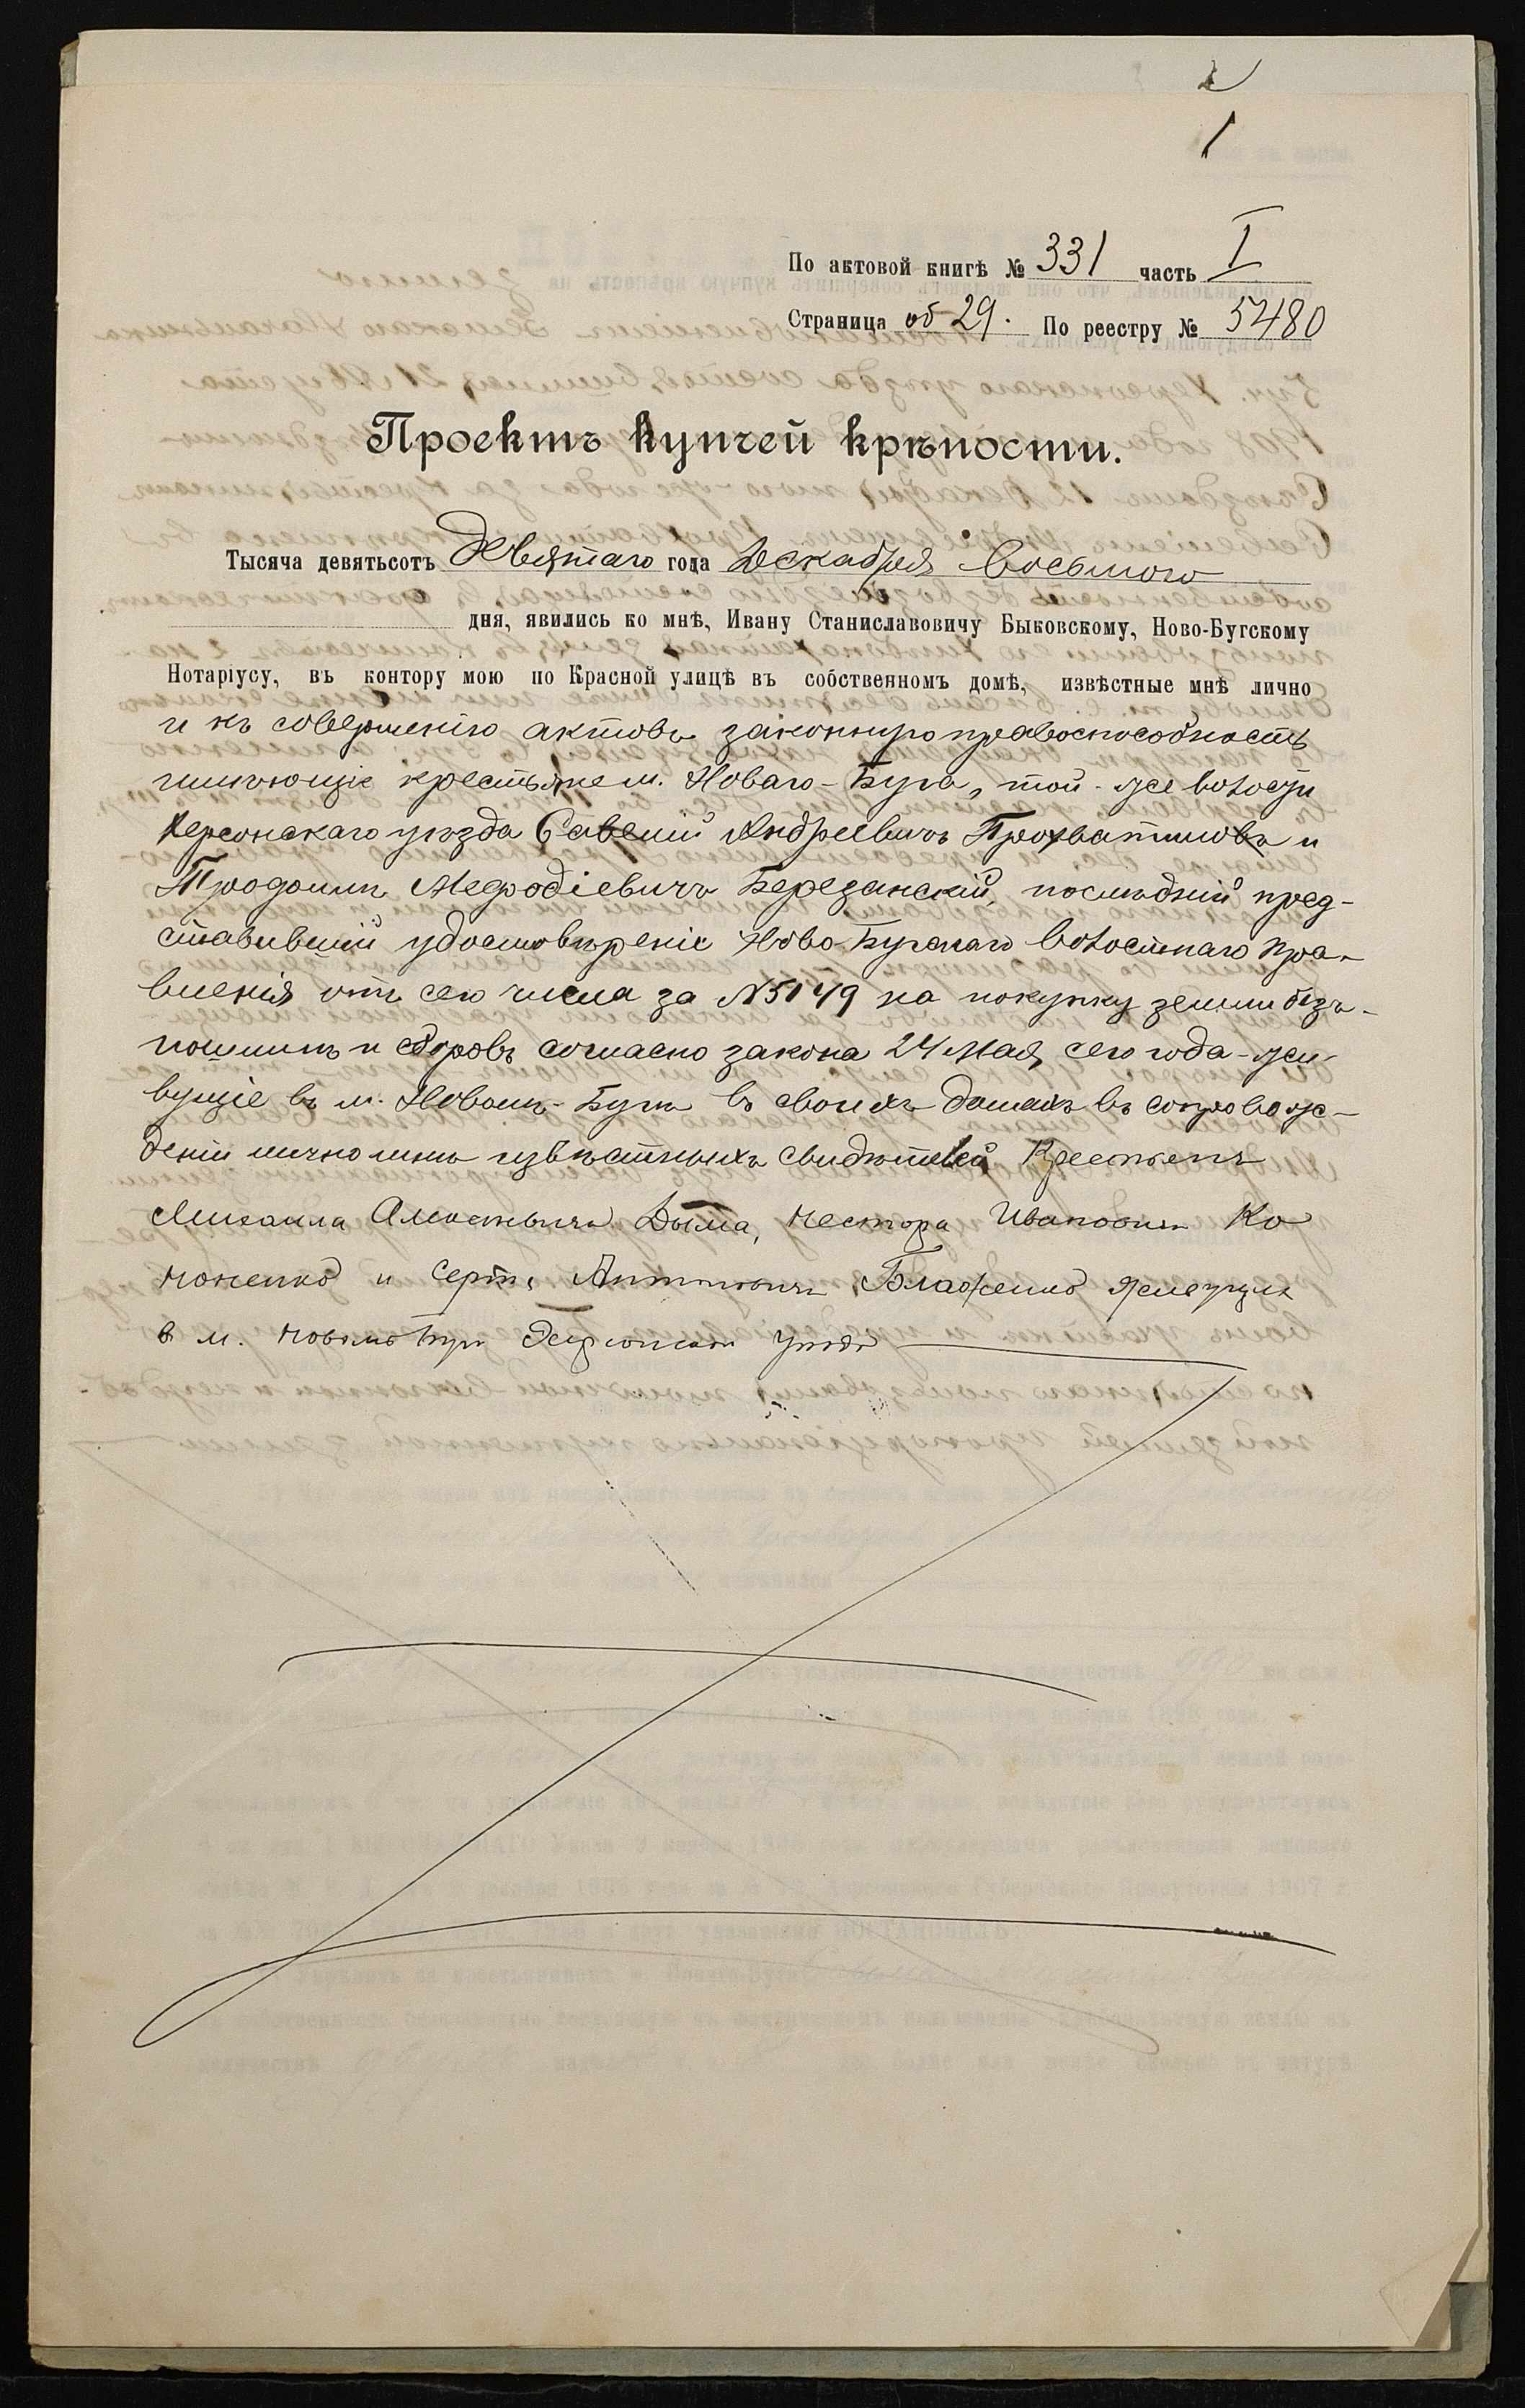 1
По актовой книгѣ № 331 часть I
Страница об 29. По реестру № 5480
Проектъ купчей крѣпости.
Тысяча девятьсотъ девятаго года Декабря восьмого
дня, явились ко мнѣ, Ивану Станиславовичу Быковскому, Ново-Бугскому
Нотаріусу, въ контору мою по Красной улицѣ въ собственномъ домѣ, извѣстные мнѣ лично
и къ совершенію актовъ законную правоспособность
имѣющіе крестьяне м. Новаго-Буга, той-же волости
Херсонскаго уѣзда Савелій Андреевичъ Прохватиловъ и
Мефодіевичъ Березанскій, послѣдній пред-
ставившій удостовѣреніе Ново-Бугскаго Волостнаго Пра-
вленія отъ сего числа за № 5149 на покупку земли безъ
пошлинъ и сборовъ согласно закона 24 Мая сего года - жи-
вущіе въ м. Новомъ-Бугѣ въ своихъ домахъ въ сопровож-
деніи лично мнѣ извѣстныхъ свидѣтелей Крестьянъ
Михаила Дыма, Нестора Иванова Ко
ноненко и Блаженко живущихъ
в м. Новомъ Бугѣ Херсонскаго уѣзда